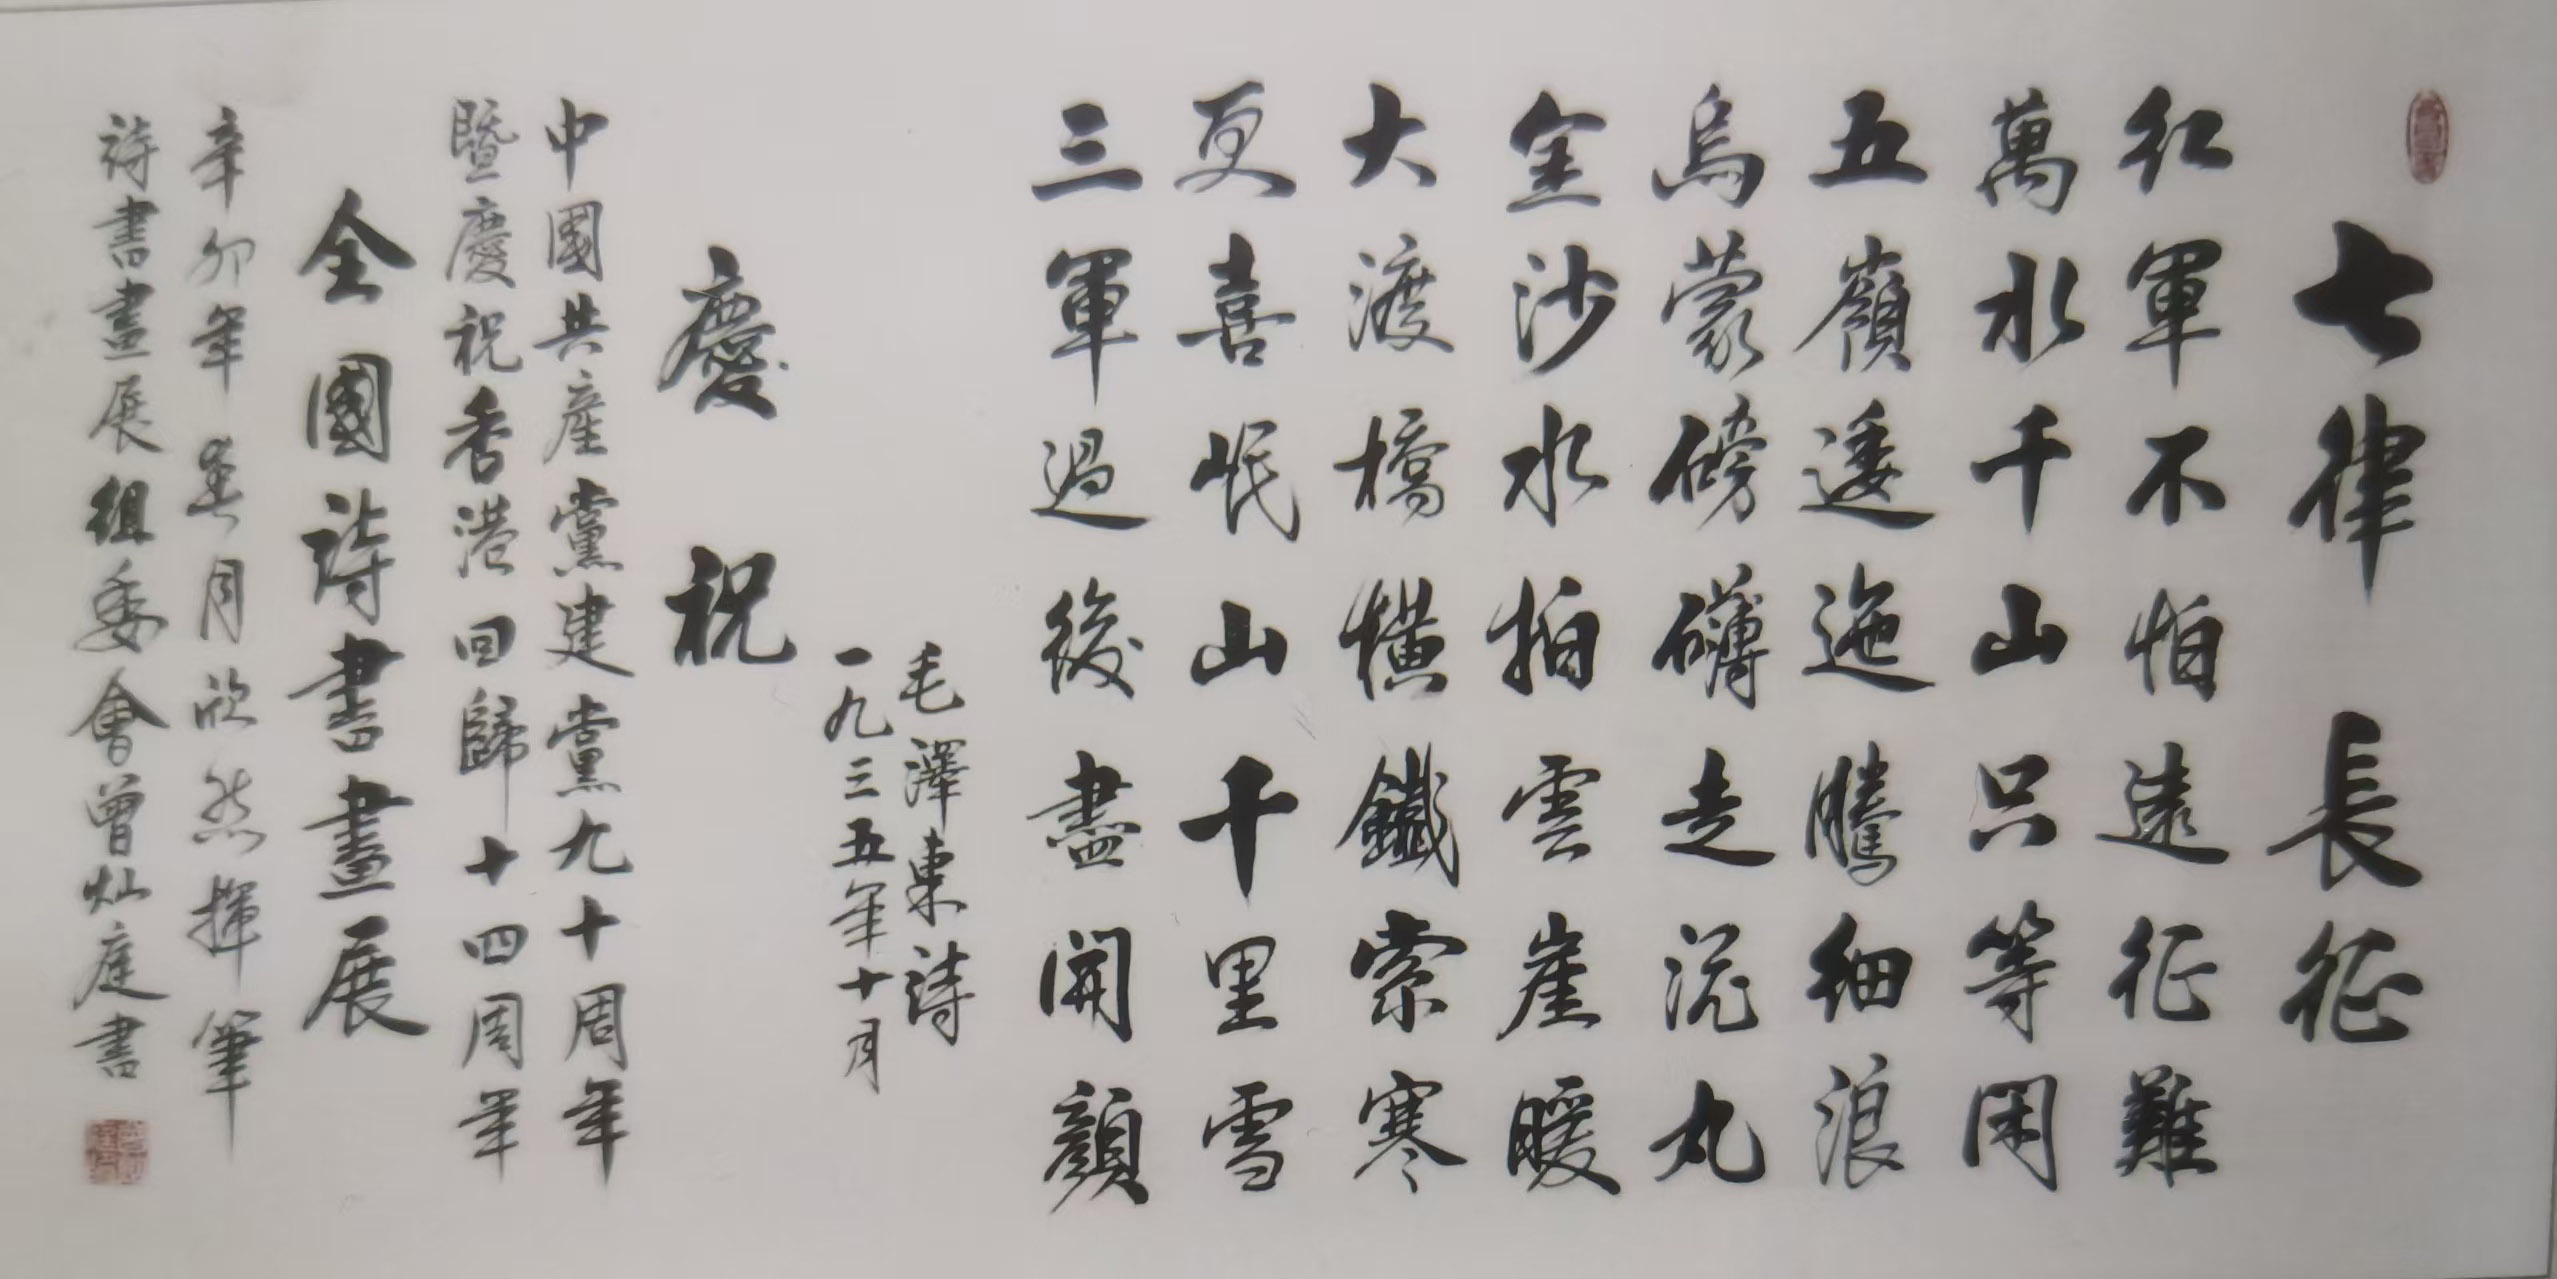 七律 長征
紅軍不怕遠征難
萬水千山只等閑
五嶺逶迤騰細浪
烏蒙磅礴走泥丸
金沙水拍雲崖暖
大渡橋橫鐵索寒
更喜岷山千里雪
三軍過後盡開顏
毛澤東詩
一九三五年十月
慶祝
中國共產黨建黨九十周年
暨慶祝香港回歸十四周年
全國詩書畫展
辛卯年 月欣然揮筆
詩書畫展組委會曾灿庭書